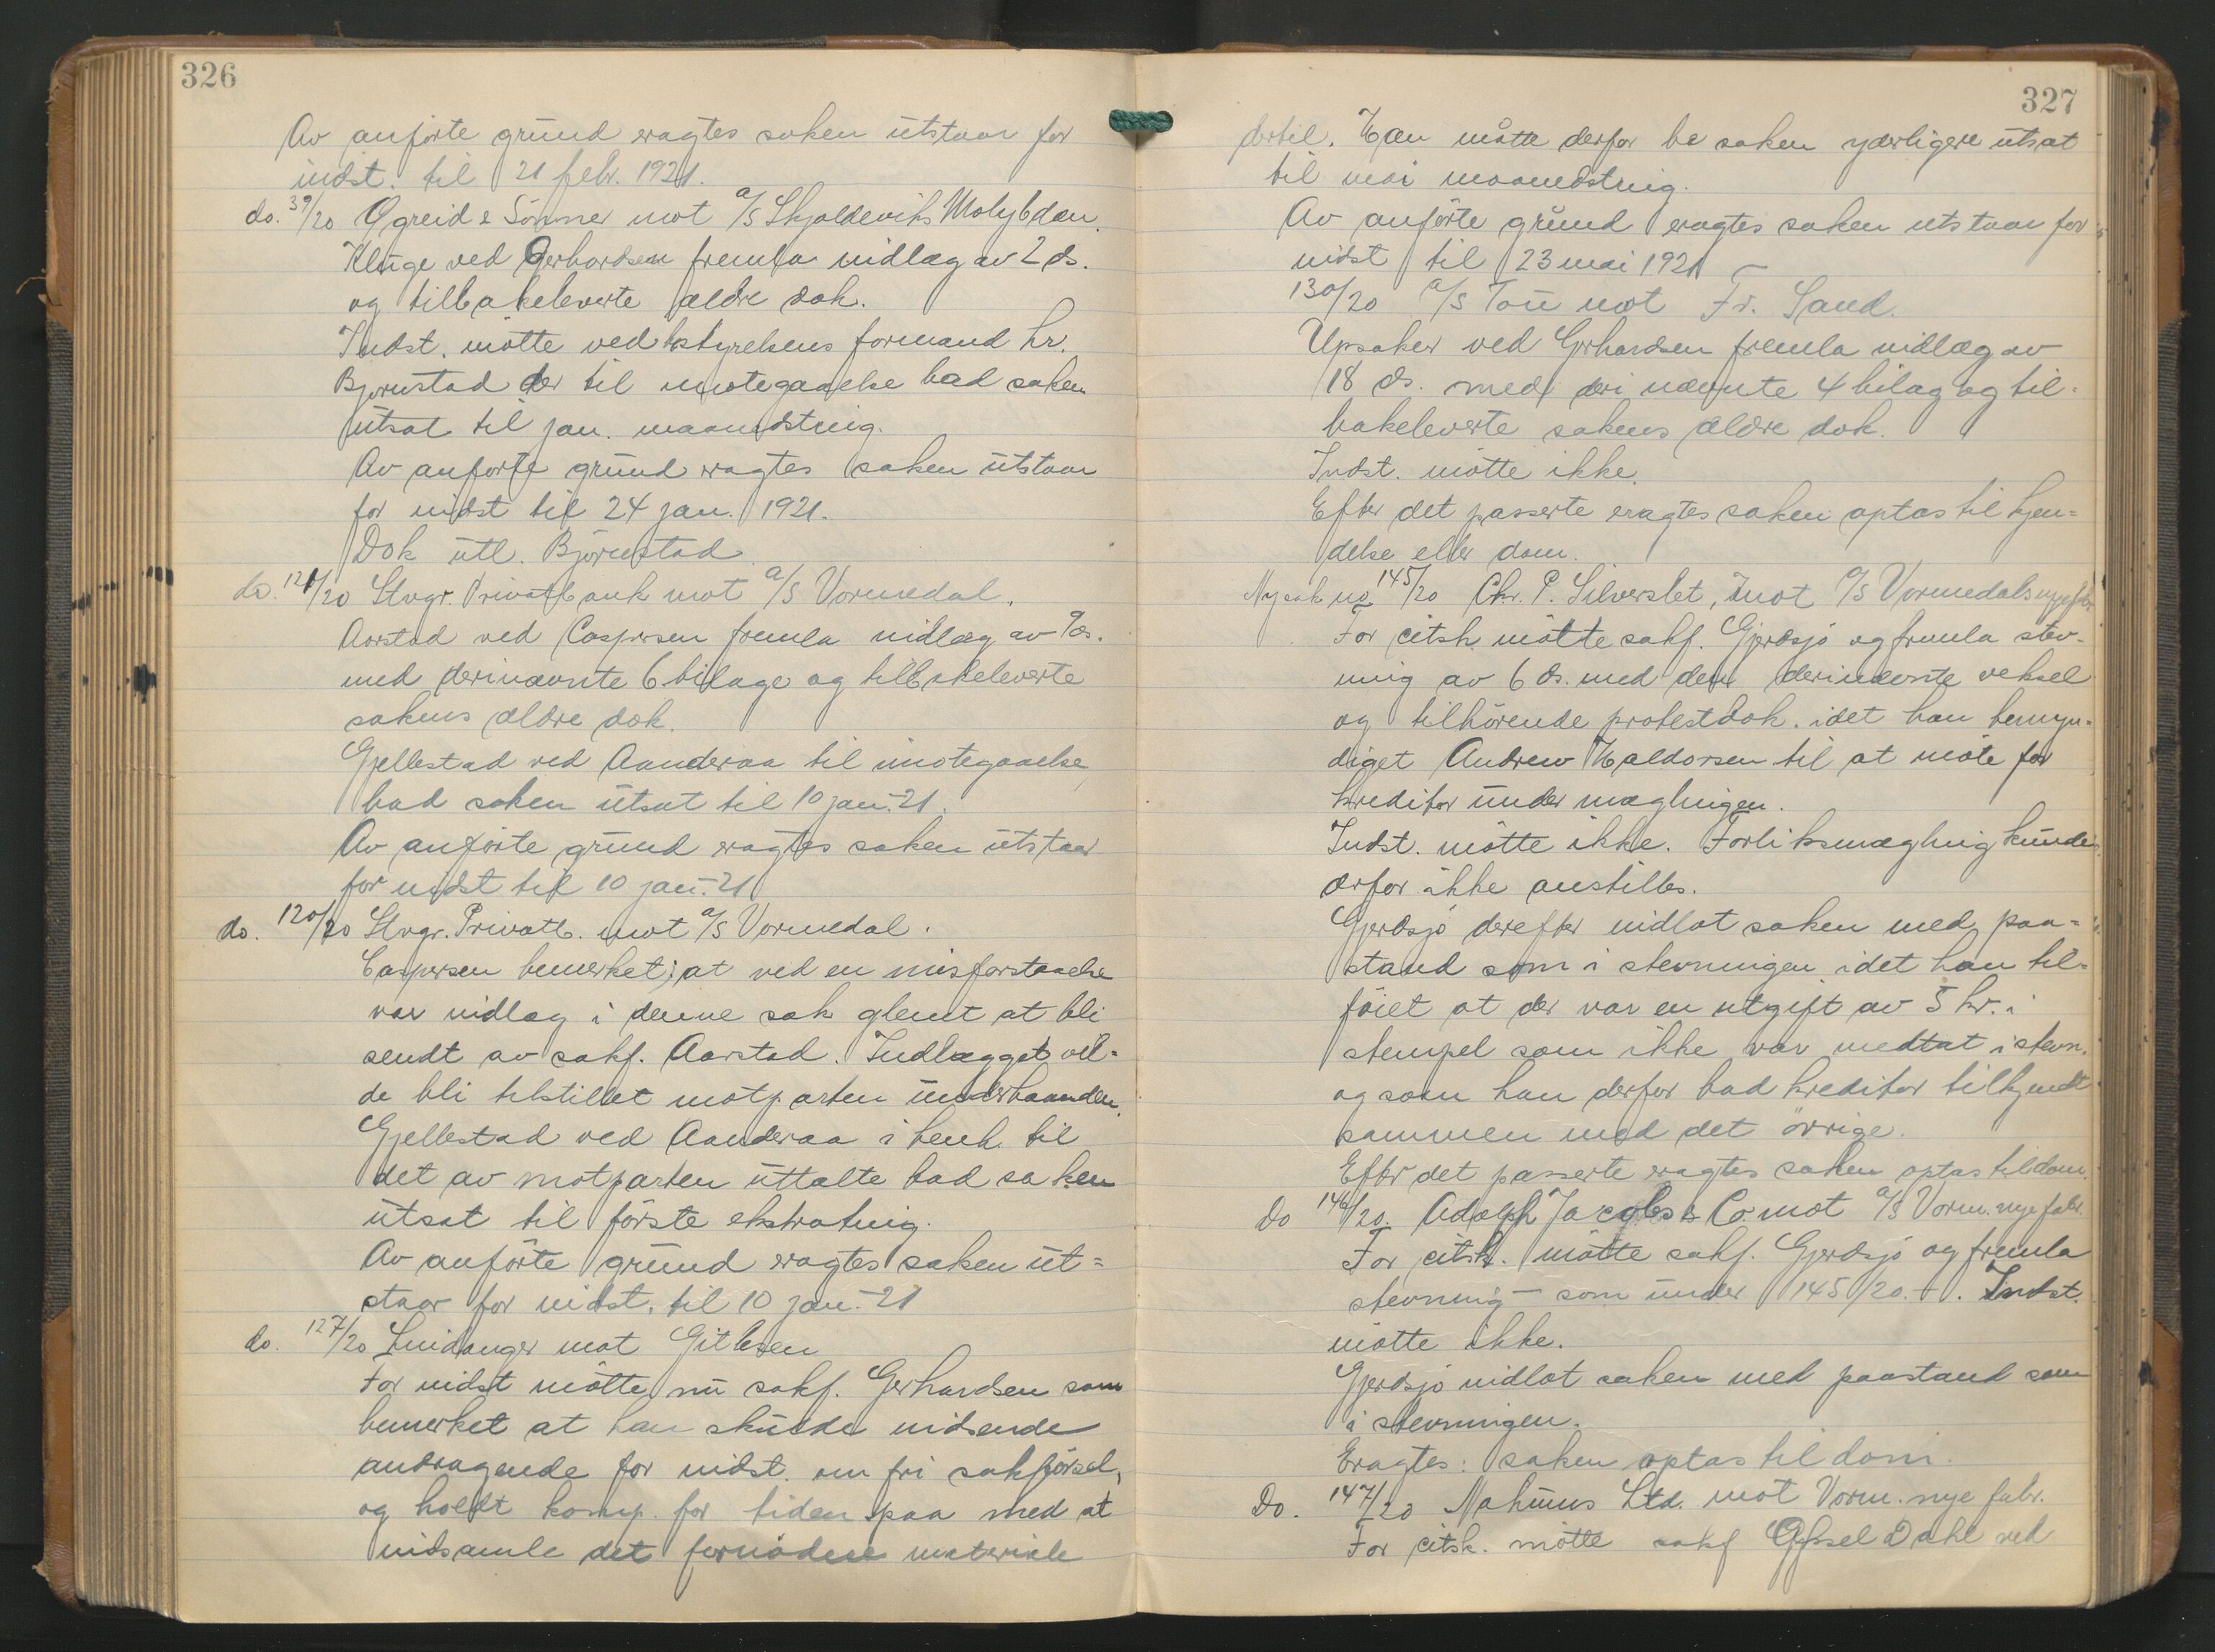 326
Av anförte grund eragtes saken utstaar for
indst. til 21 febr. 1921.
do. 39/20 Ogreid & Sönner mot A/S Skjoldeviks Molybdæn.
Kluge ved Gerhardsen fremla indlæg av 2 ds.
og tilbakeleverte ældre dok.
Indst. mötte ved bestyrelsens formand hr.
Bjørnstad der til imötegaaelse bad saken
utsat til jan. maanedsting.
Av anförte grund eragtes saken utstaar
for indst til 24 jan. 1921.
Dok utl. Björnstad
do. 121/20 Stvgr. Privatbank mot A/S Vormedal.
Aarstad ved Caspersen fremla indlæg av 9 ds.
med derinævnte 6 bilage og tilbakeleverte
sakens ældre dok.
Gjellestad ved Aanderaa til imötegaaelse
bad saken utsat til 10 jan. 21.
Av anförte grund eragtes saken utstaar
for indst til 10 jan. 21
do. 120/20 Stvgr. Privatb. mot A/S Vormedal.
Caspersen bemerket; at ved en misforstaaelse
var indlæg i denne sak glemt at bli
sendt av sakf. Aarstad. Indlægget vil-
de bli tilstillet motparten underhaanden.
Gjellestad ved Aanderaa i henh. til
det av motparten uttalte bad saken
utsat til förste ekstrating.
Av anförte grund eragtes saken ut=
staar for indst. til 10 jan. 21
do. 127/20 Lindanger mot Gitlesen
For indst mötte nu sakf. Gerhardsen som
bemerket at han skulde indsende
andragende for indst. om fri sakförsel,
og holdt komp. for tiden paa med at
indsamle det fornödne materiale
327
dertil. Han måtte derfor be saken yderligere utsat
til mai maanedsting.
Av anförte grund eragtes saken utstaar for
indst til 23 mai 1921 –
130/20 A/S Tou mot Fr. Sand.
Upsaker ved Gerhardsen fremla indlæg av
18 ds. med deri nævnte 4 bilag og til-
bakeleverte sakens ældre dok.
Indst. mötte ikke.
Efter det passerte eragtes saken optas til kjen=
delse eller dom.
Ny sak no 145/20 Chr. P. Silverslet, mot A/S Vormedals nye fbr.
For citsk mötte sakf. Gjerdsjö og fremla stev-
ning av 6 ds. med den derinævnte veksel
og tilhörende protestdok. idet han bemyn=
diget Andrew Haldorsen til at möte for
kreditor under mæglingen.
Indst. mötte ikke. Forliksmægling kunde
derfor ikke anstilles.
Gjerdsjö derefter indlot saken med paa=
stand som i stevningen idet han til-
föiet at der var en utgift av 5 kr. i
stempel som ikke var medtat i stevn.
og som han derfor bad kreditor tilkjendt
sammen med det övrige.
Efter det passerte eragtes saken optas til dom.
Do 146/20. Adolph Jacobs & Co. mot A/S Vorm. nye fabr.
For citsk. mötte sakf. Gjerdsjö og fremla
stevning – som under 145/20. –. Indst.
mötte ikke.
Gjerdsjö indlot saken med paastand som
i stevningen.
Eragtes: saken optas til dom.
Do. 147/20 Mahnus Ltd. mot Vorm. nye fabr.
For citsk. mötte sakf Dahl ved